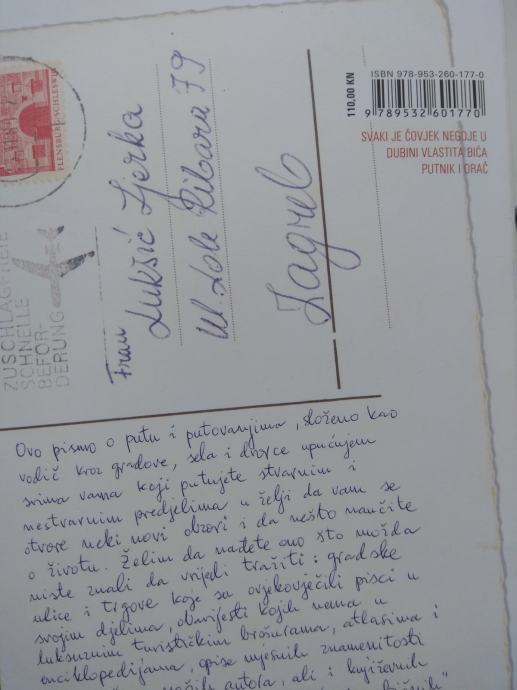 FLENSBURG-SCHLESWIG
ZUSCHLAGFREIE
SCHNELLE
BEFOR-
DERUNG
Frau
Lukšić Ljerka
Ul. Lole Ribara 79
Zagreb
110,00 KN
ISBN 978-953-260-177-0
9 789532 601770
SVAKI JE ČOVJEK NEGDJE U
DUBINI VLASTITA BIĆA
PUTNIK I ORAČ
Ovo pismo o putu i putovanjima, složeno kao
vodič kroz gradove, sela i dvorce upućujem
svima vama koji putujete stvarnim i
nestvarnim predjelima u želji da vam se
otvore neki novi obzori i da nešto naučite
o životu. Želim da nađete ono što možda
niste znali da vrijedi tražiti: gradske
ulice i trgove koje su ovjekovječili pisci u
svojim djelima, obavijesti kojih nema u
luksuznim turističkim brošurama, atlasima i
enciklopedijama, opise mjesnih znamenitosti
autora, ali i književnih